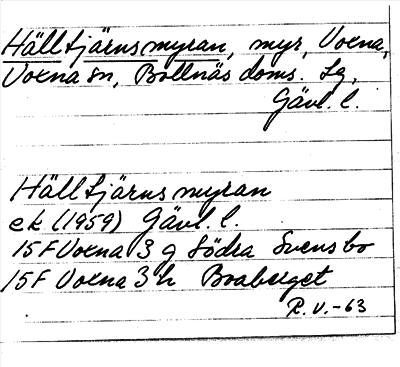 Hälltjärnsmyran, myr, Voxna,
Voxna sn, Bollnäs doms. sg,
Gävl. l.
Hälltjärnsmyran
ek (1959) Gävl. l.
15F Voxna 3 g Södra Svensbo
15F Voxna 3 h Braberget
R. V. -63